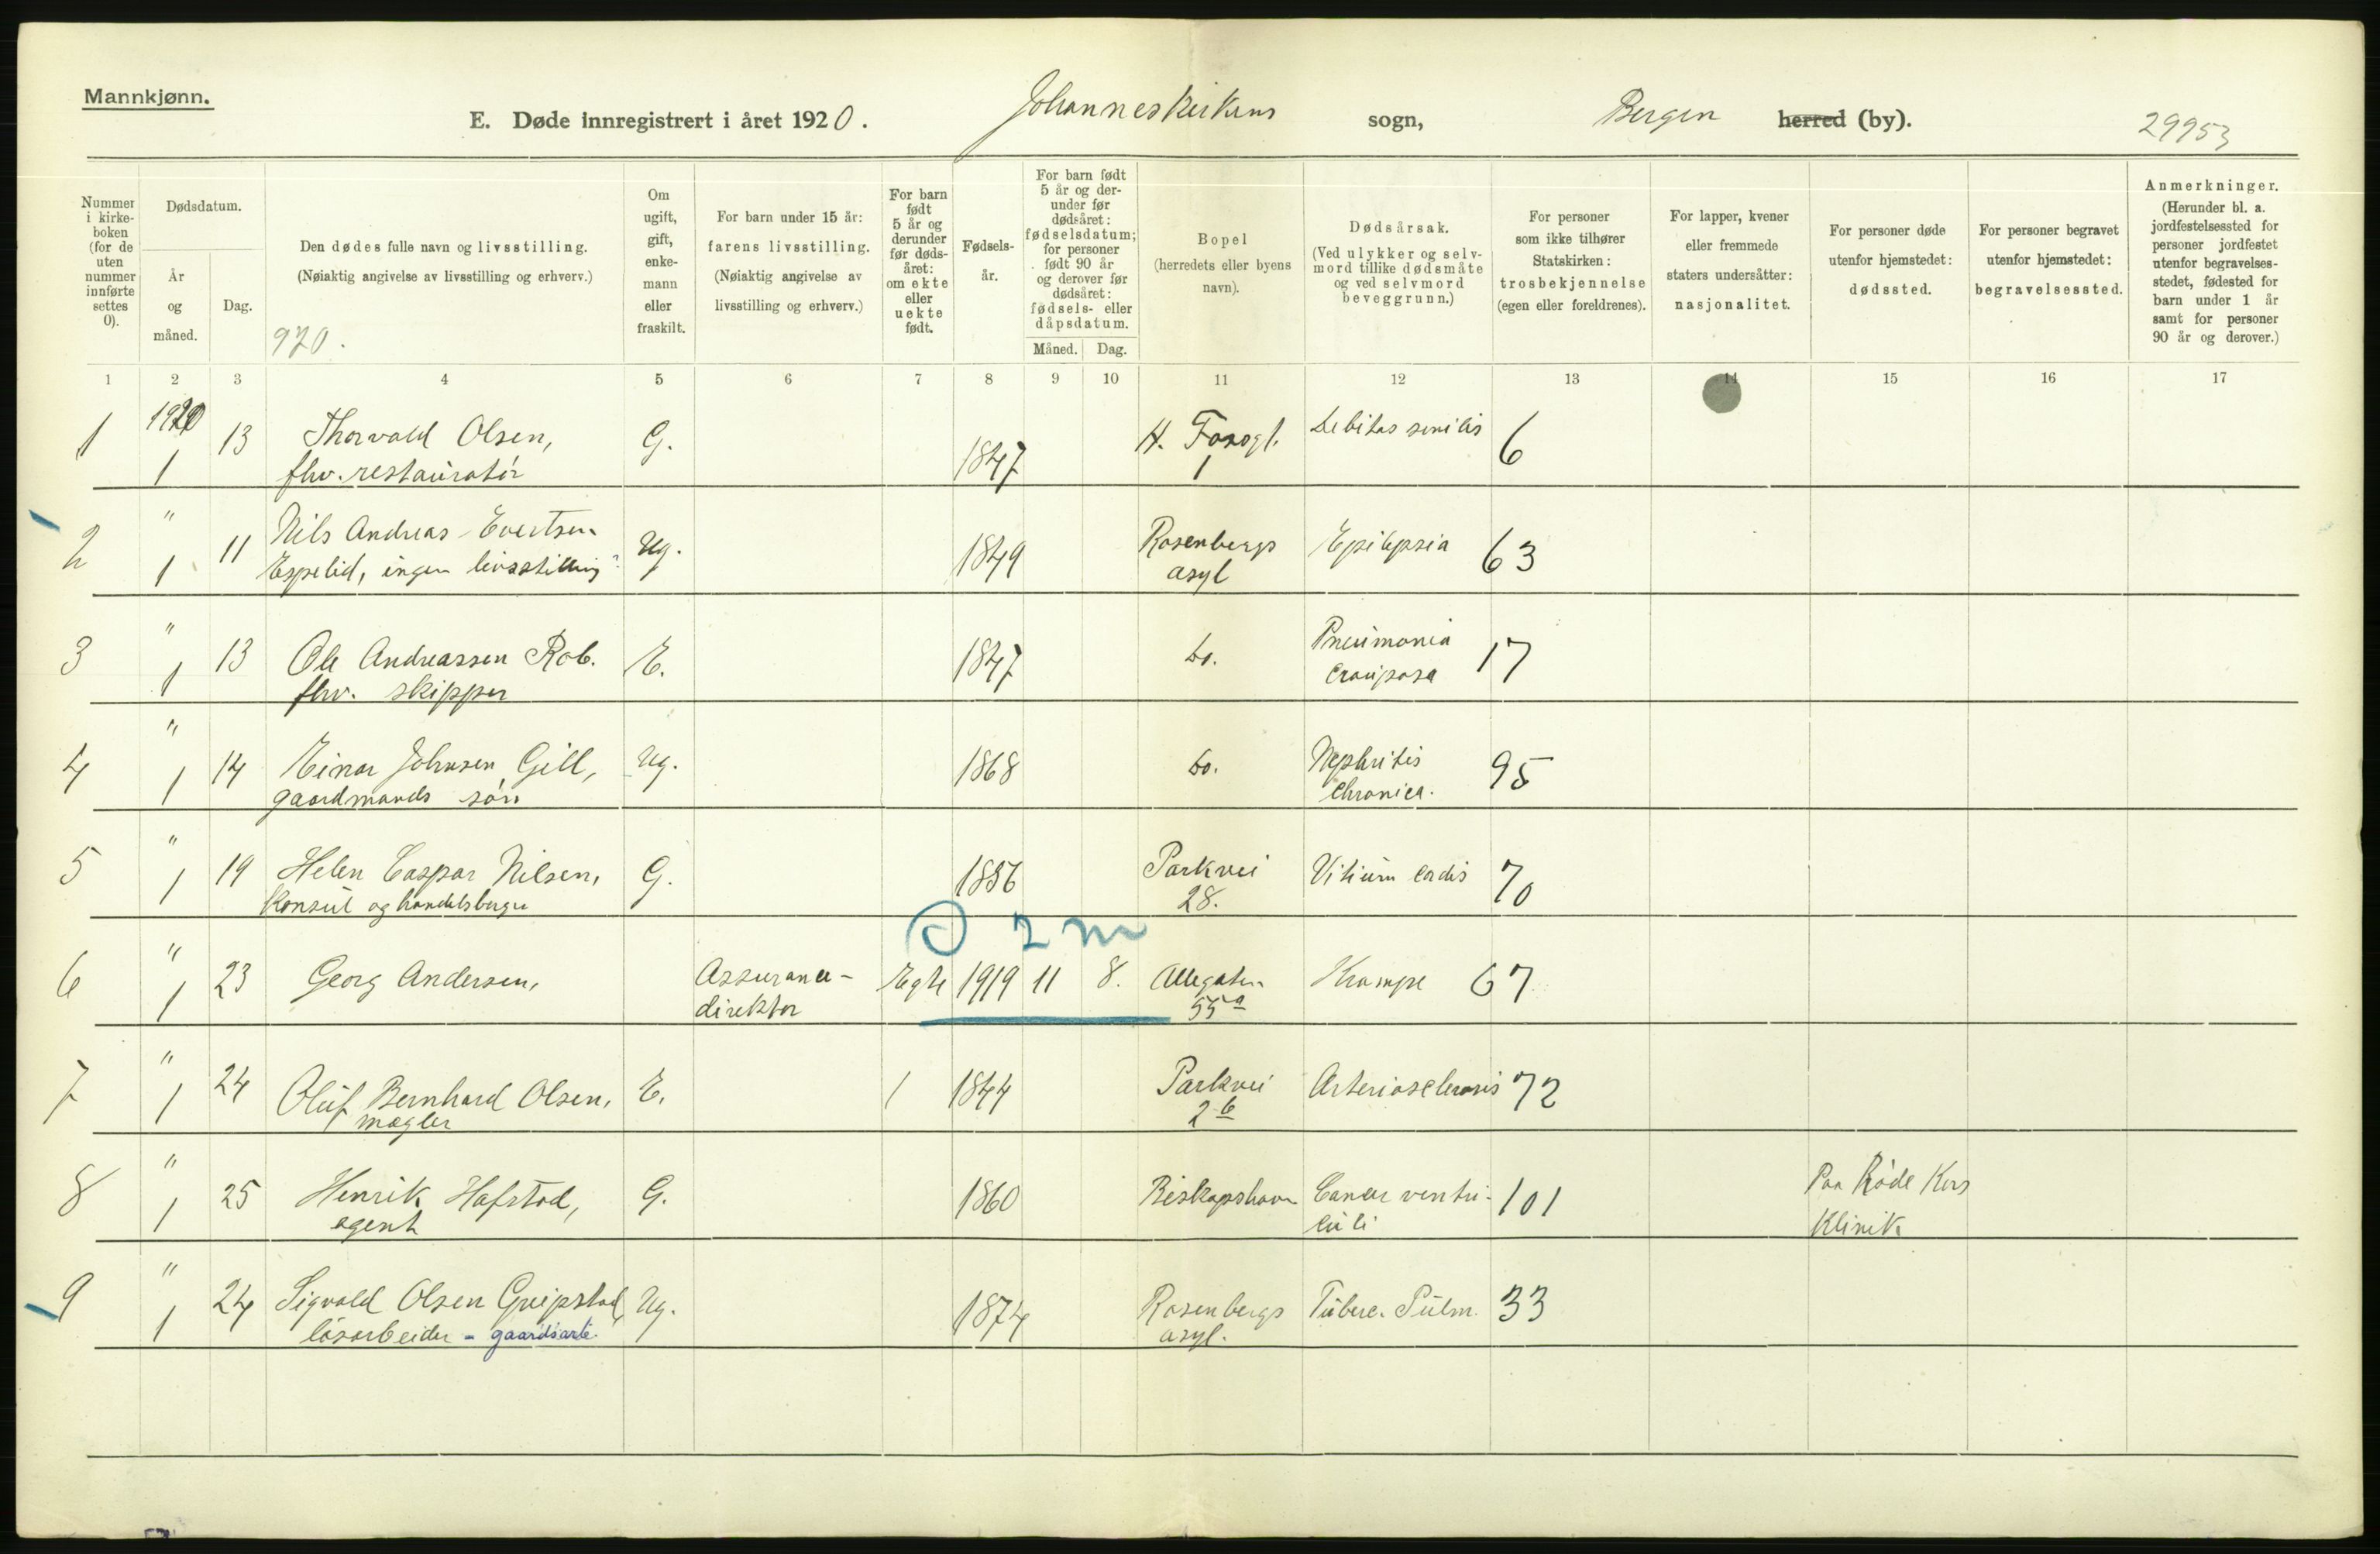 Mannkjønn.
E. Døde innregistrert i året 1920. Johanneskirkens sogn, Bergen herred (by). 29953
Nummer i kirke-boken (for de uten nummer innførte settes 0).
Dødsdatum.
År og måned.
Dag.
Den dødes fulle navn og livsstilling.
(Nøiaktig angivelse av livsstilling og erhverv.)
920.
Om ugift, gift, enke-mann eller fraskilt.
For barn under 15 år: farens livsstilling. (Nøiaktig angivelse av livsstilling og erhverv.)
For barn født 5 år og derunder før døds-året: om ekte eller uekte født.
Fødsels-år.
For barn født 5 år og der-under før dødsåret: fødselsdatum; for personer født 90 år og derover før dødsåret: fødsels- eller dåpsdatum.
Måned. Dag.
Bopel (herredets eller byens navn).
Dødsårsak. (Ved ulykker og selv-mord tillike dødsmåte og ved selvmord beveggrunn.)
For personer som ikke tilhører Statskirken: trosbekjennelse (egen eller foreldrenes).
For lapper, kvener eller fremmede staters undersåtter: nasjonalitet.
For personer døde utenfor hjemstedet: dødssted.
For personer begravet utenfor hjemstedet: begravelsessted.
Anmerkninger. (Herunder bl. a. jordfestelsessted for personer jordfestet utenfor begravelses-stedet, fødested for barn under 1 år samt for personer 90 år og derover.)
1 2 3 4 5 6 7 8 9 10 11 12 13 14 15 16 17
1 1920 1 13 Thorvald Olsen, G. 1847 1 Debitas senilis 6
fhv. restauratør
2 " 1 11 Nils Andreas Evertsen Ug. 1849 Rosenbergs Epilepsia 63
Espelid, ingen livsstilling asyl
3 " 1 13 Ole Andreassen Rob. E. 1847 do. Pneumonia 17
fhv. skipper crouposa
4 " 1 14 Einar Johnsen Gill, Ug. 1868 do. Nephritis 95
gaardmands søn chronica.
5 " 1 19 Helen Caspar Nilsen, G. 1856 Parkvei Vitium cordis 70
Konsul og handelsborger 28.
6 " 1 23 Georg Andersen, Assurance- Egte 1919 11 8. Allegaten Krampe 67
direktør 55a
2 m
7 " 1 24 Oluf Bernhard Olsen, E. 1 1844 Parkvei Arteriosclerosis 72
mægler 2b
8 " 1 25 Henrik Hafstad, G. 1860 Biskopshavn Cancer ventri- 101 Paa Røde Kors
agent culi Klinik
9 " 1 24 Sigvald Olsen Greipstad, Ug. 1874 Rosenbergs Tuberc. Pulm. 33
løsarbeider - gaardsarb. asyl.